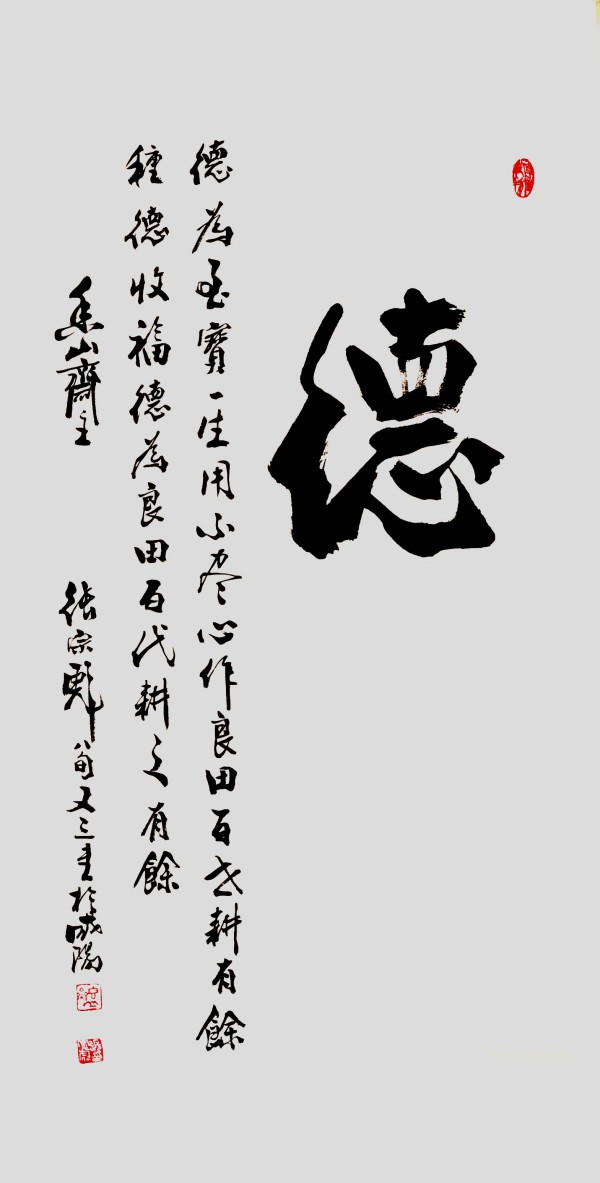 德
德為至寶一生用不尽心作良田百世耕有餘
種德收福德為良田百代耕之有餘
山齋主 張宗彪八旬又三書於陽